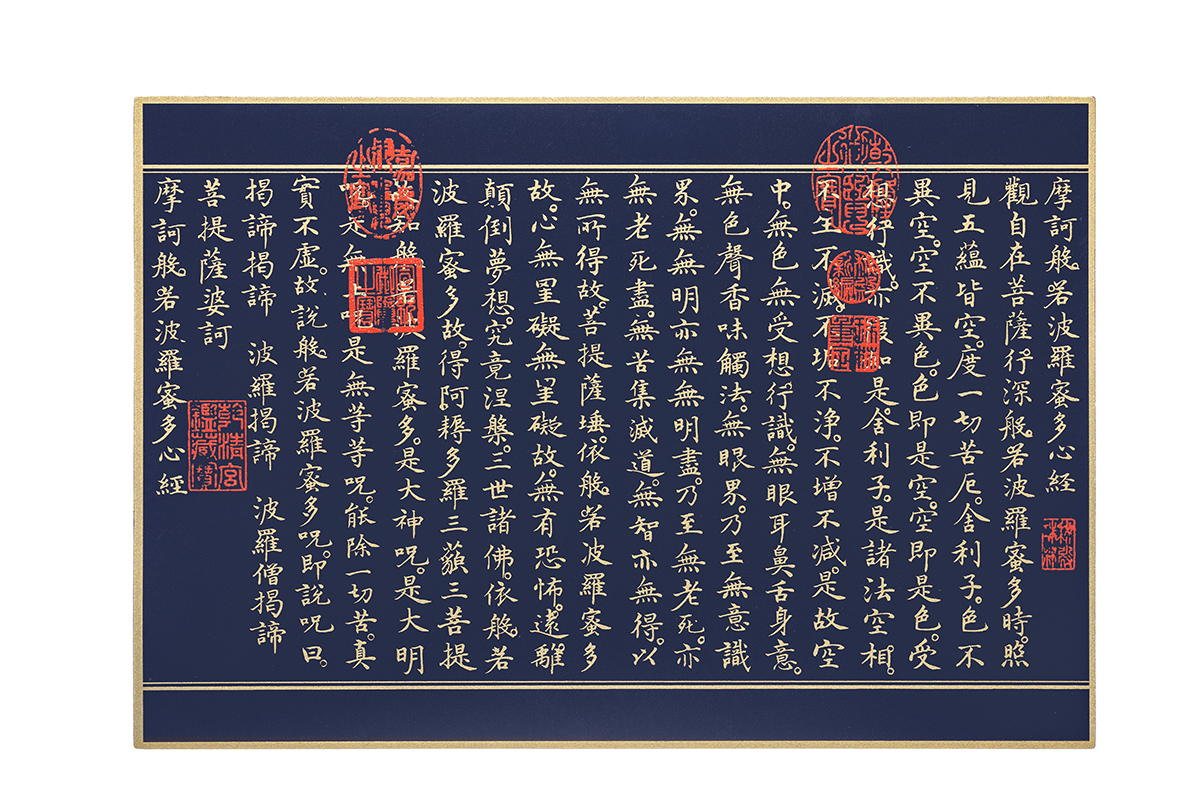 摩訶般若波羅蜜多心經
秘殿珠林
觀自在菩薩行深般若波羅蜜多時。照
見五蘊皆空。度一切苦厄。舍利子。色不
異空。空不異色。色即是空。空即是色。受
想行識。亦復如是。舍利子。是諸法空相。
不生不滅。不垢不淨。不增不減。是故空
乾隆御覽之寶
秘殿新編
珠林重定
中。無色無受想行識。無眼耳鼻舌身意。
無色聲香味觸法。無眼界。乃至無意識
界。無無明亦無無明盡。乃至無老死。亦
無老死盡。無苦集滅道。無智亦無得。以
無所得故。菩提薩埵。依般若波羅蜜多
故。心無罣礙無罣礙故。無有恐怖。遠離
顛倒夢想。究竟涅槃。三世諸佛。依般若
波羅蜜多故。得阿耨多羅三藐三菩提
故知般若波羅蜜多。是大神呪。是大明
呪是無上呪是無等等呪。能除一切苦。真
嘉慶御覽之寶
宣統御覽之寶
實不虛。故說般若波羅蜜多呪。即說呪曰。
揭諦揭諦 波羅揭諦 波羅僧揭諦
菩提薩婆訶
乾清宮鑑藏寶
摩訶般若波羅蜜多心經